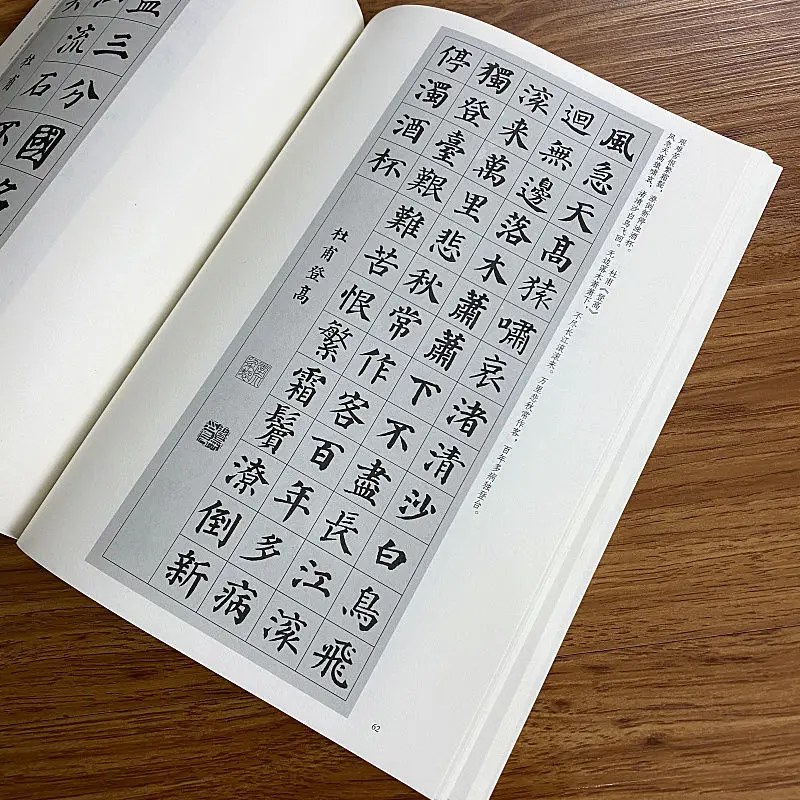 風急天高猿嘯哀渚清沙白鳥飛
迴無邊落木蕭蕭下不盡長江滚
滚来萬里悲秋常作客百年多病
獨登臺艱難苦恨繁霜鬢潦倒新
停濁酒杯
杜甫登高
风急天高猿啸哀，渚清沙白鸟飞回。无边落木萧萧下，不尽长江滚滚来。万里悲秋常作客，百年多病独登台。
艰难苦恨繁霜鬓，潦倒新停浊酒杯。 杜甫《登高》
62
三分國名
流石不
杜甫